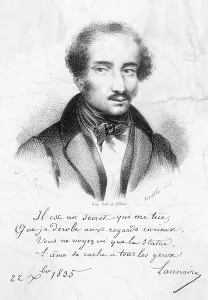 Il est un secret qui me tue,
Que je dérobe aux regards curieux,
Vous ne voyez ici que la Statue,
L'âme se cache à tous les yeux.
Lacenaire
22 Xbre 1835